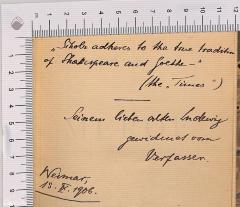 „Scholz adheres to the true tradition
of Shakespeare and Goethe."
(the „Times")
Seinem lieben alten Ludwig
gewidmet vom
Verfasser.
Weimar,
13. XI. 1906.